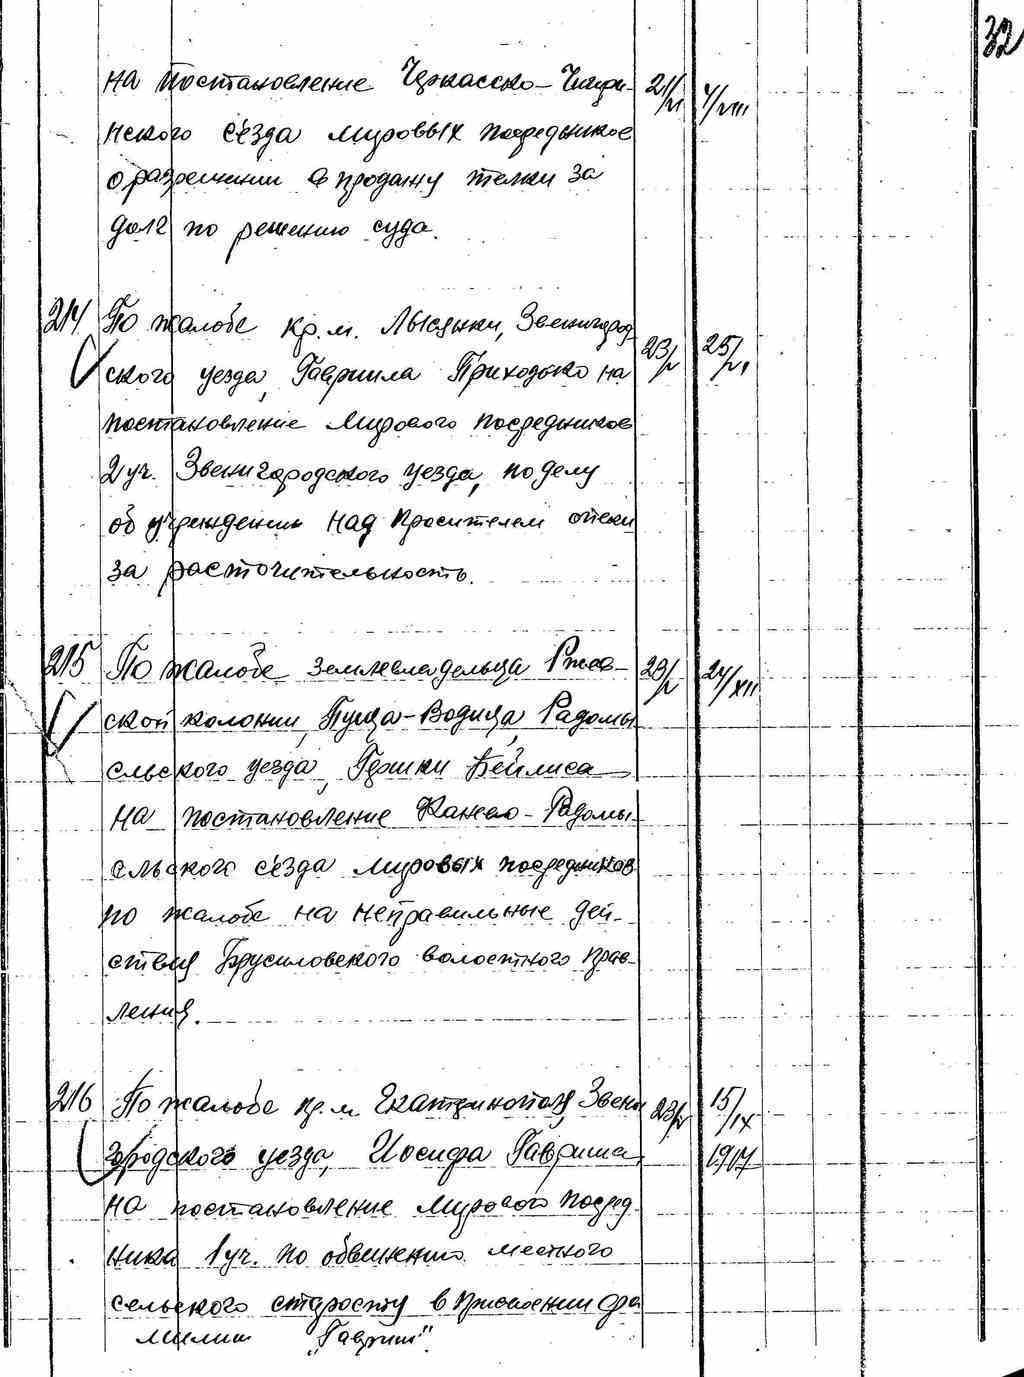 32
на постановление Черкасско-Чигри- 21/VI 4/VIII
нского сезда мировых посредников
о разрешении в продажу телки за
долг по решению суда.
214 По жалобе кр. м. Лысянки, Звенигород- 23/V 25/VI
ского уезда, Гавриила Приходько на
постановление Мирового посредников
2 уч. Звенигородского уезда, по делу
об учреждении над просителем опеки
за расточительность.
215 По жалобе землевладельца Ржев- 23/V 24/XII
ской колонии, Пуща-Водица, Радомы
сльского уезда, Гершки Бейлиса
на постановление Канево-Радомы-
сльского сезда мировых посредников
по жалобе на неправильные дей-
ствия Брусиловского волостного прав-
ления.
216 По жалобе кр. м. Екатеринополя, Звени 23/V 15/IX
городского уезда, Иосифа Гавриша, 1917
на постановление Мирового посред-
ника 1 уч. по обвинению местного
сельского старосту в присвоении фа
милии "Гавриш".